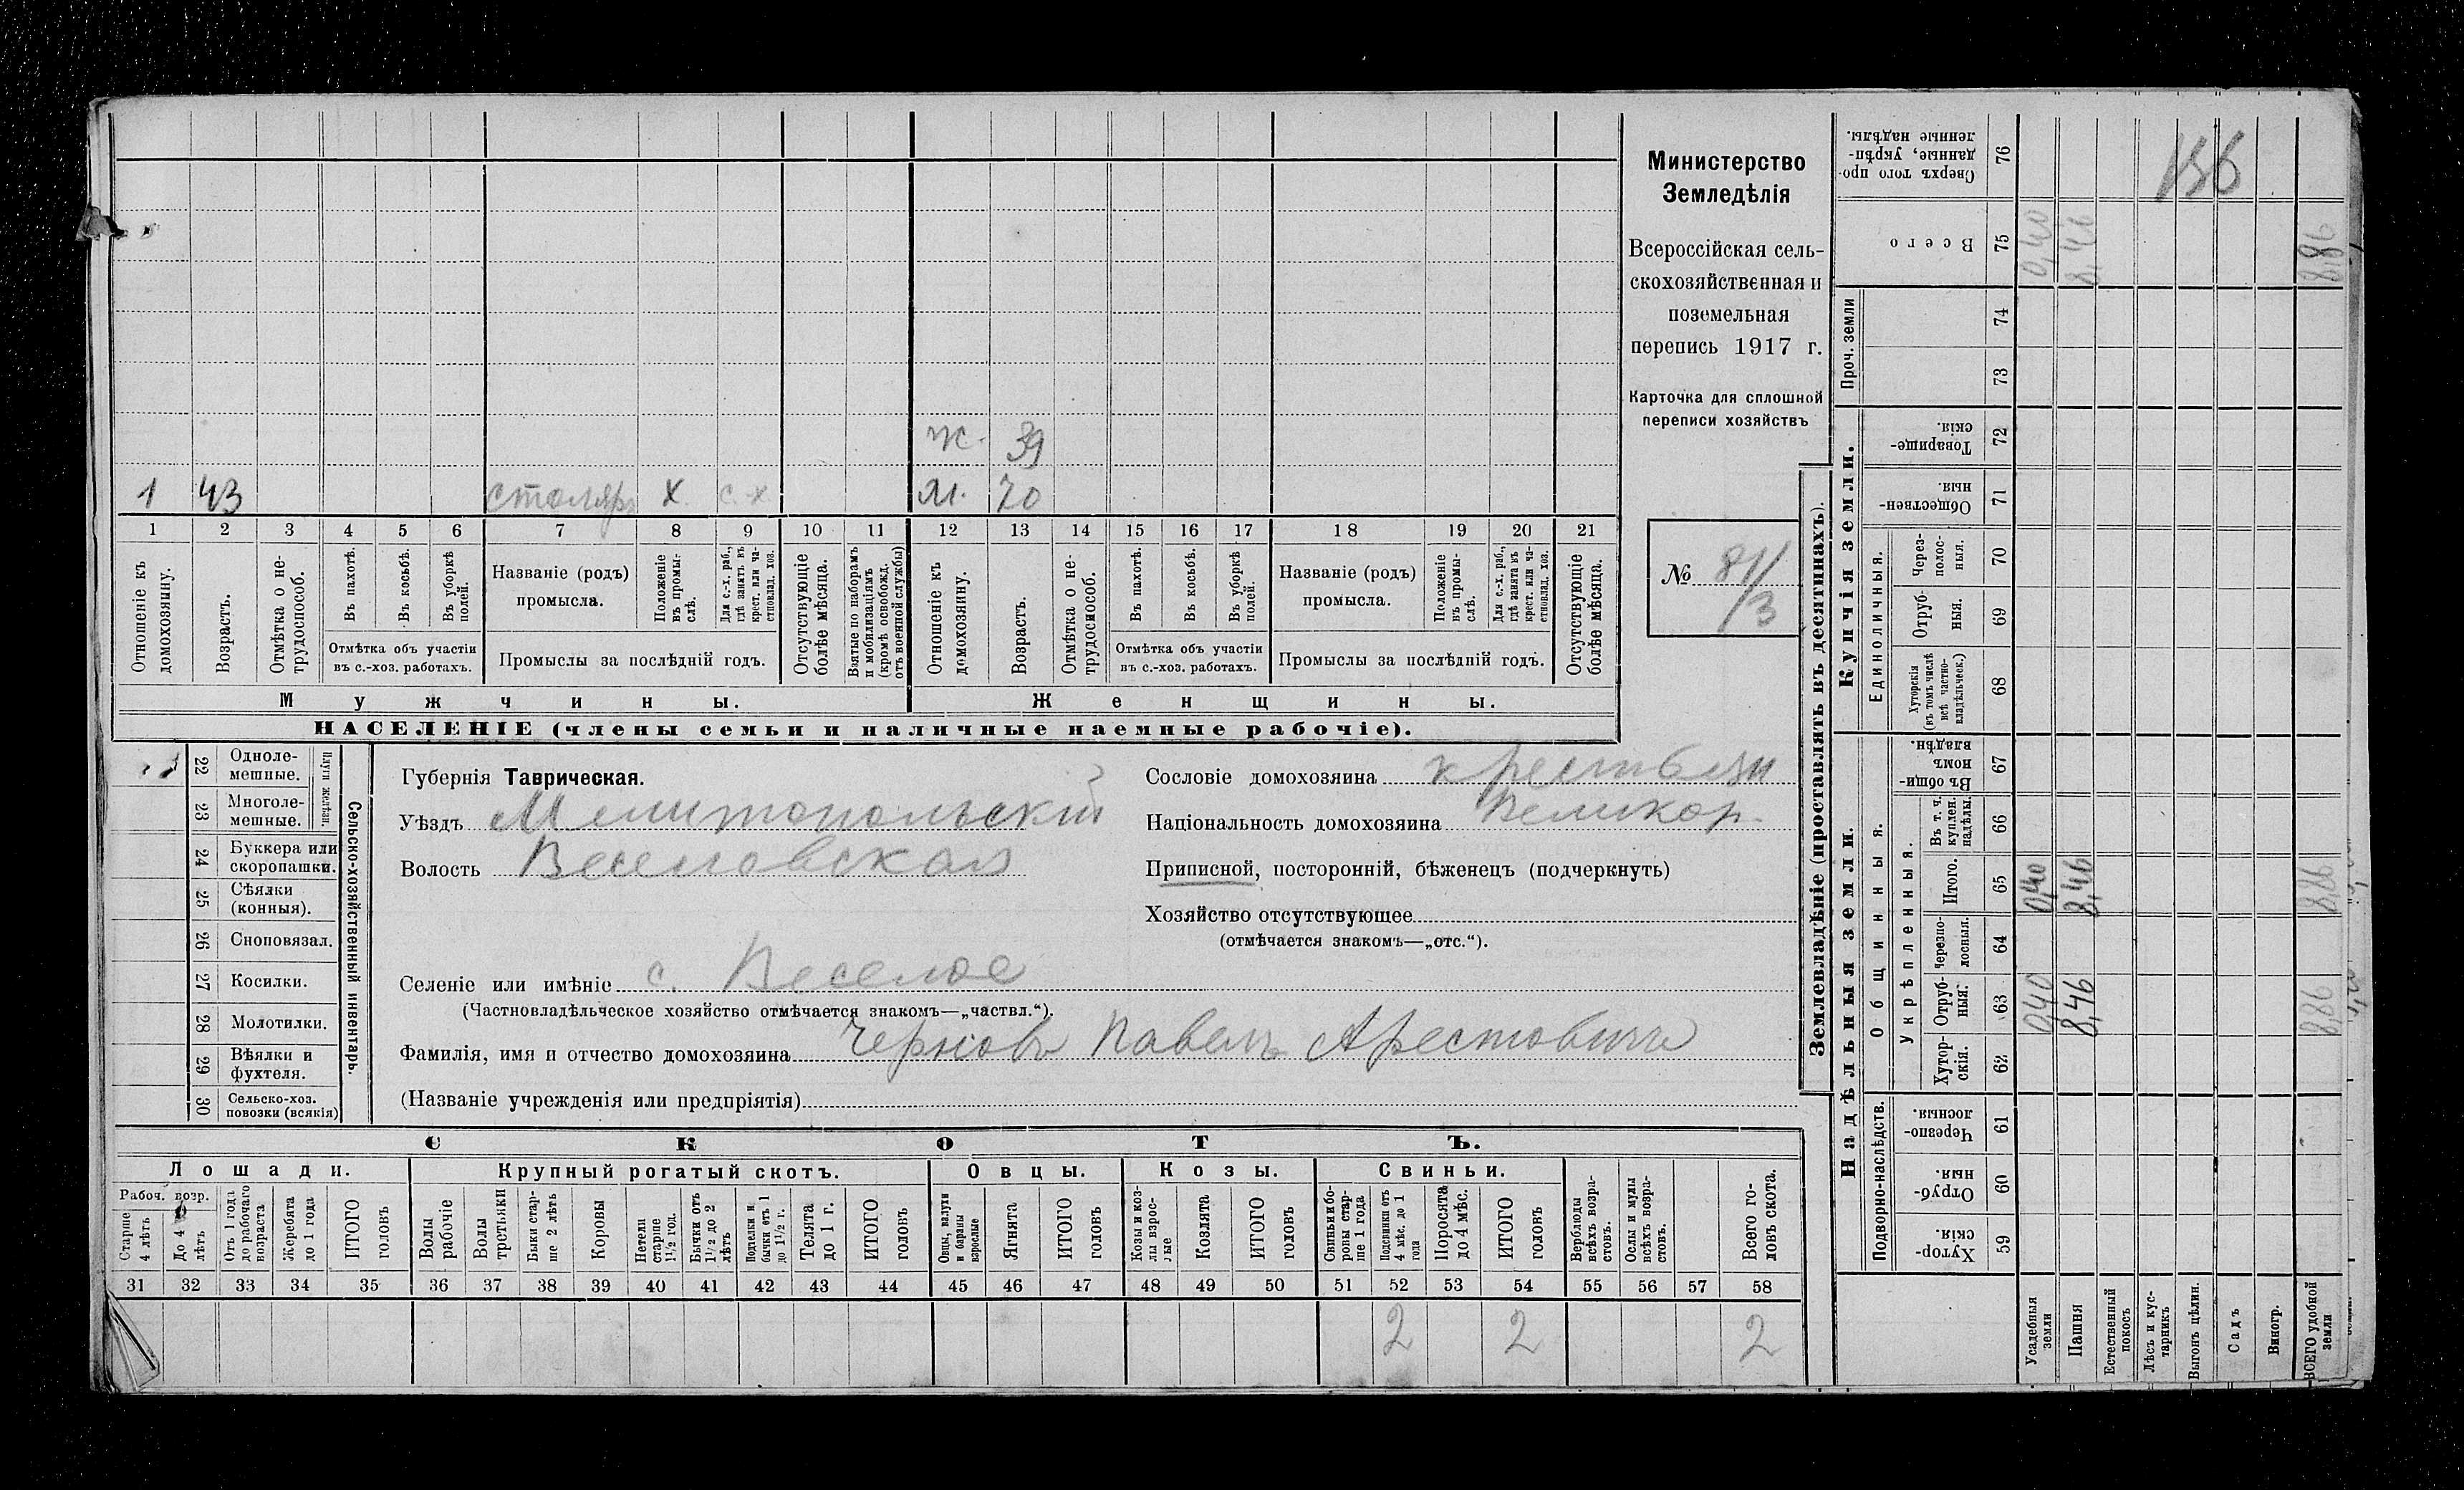 Министерство
Земледѣлія
Всероссійская сель-
скохозяйственная и
поземельная
перепись 1917 г.
Карточка для сплошной
переписи хозяйствъ
№ 81/3
156
ж. 39
1 43 столяръ х с.-х м. 70
1 2 3 4 5 6 7 8 9 10 11 12 13 14 15 16 17 18 19 20 21
Отношеніе къ домохозяину.
Возрастъ.
Отмѣтка о не-трудоспособ.
Въ пахотѣ.
Въ косьбѣ.
Въ уборкѣ полей.
Отмѣтка объ участіи
въ с.-хоз. работахъ.
Названіе (родъ)
промысла.
Положеніе въ промы-слѣ.
Для с.-х. раб., гдѣ занятъ въ крест. или ча-стновлад. хоз.
Промыслы за послѣдній годъ.
Отсутствующіе болѣе мѣсяца.
Взятые по наборамъ и мобилизаціямъ (кромѣ освобожд. отъ военной службы)
Отношеніе къ домохозяину.
Возрастъ.
Отмѣтка о не-трудоспособ.
Въ пахотѣ.
Въ косьбѣ.
Въ уборкѣ полей.
Отмѣтка объ участіи
въ с.-хоз. работахъ.
Названіе (родъ)
промысла.
Положеніе въ промы-слѣ.
Для с.-х. раб., гдѣ занята въ крест. или ча-стновлад. хоз.
Промыслы за послѣдній годъ.
Отсутствующіе болѣе мѣсяца.
Мужчины. Женщины.
НАСЕЛЕНІЕ (члены семьи и наличные наемные рабочіе).
Сельско-хозяйственный инвентарь.
Плуги желѣзн.
22 Одноле-мешные.
23 Многоле-мешные.
24 Буккера или скоропашки.
25 Сѣялки (конныя).
26 Сноповязал.
27 Косилки.
28 Молотилки.
29 Вѣялки и фухтеля.
30 Сельско-хоз. повозки (всякія)
Губернія Таврическая.
Уѣздъ Мелитопольскій
Волость Веселовская
Сословіе домохозяина крестьян
Національность домохозяина Великор.
Приписной, посторонній, бѣженецъ (подчеркнуть)
Хозяйство отсутствующее
(отмѣчается знакомъ—„отс.“).
Селеніе или имѣніе с. Веселое
(Частновладѣльческое хозяйство отмѣчается знакомъ—„частвл.“).
Фамилія, имя и отчество домохозяина Черновъ Павелъ Арестовичъ
(Названіе учрежденія или предпріятія)
Скотъ.
Лошади. Крупный рогатый скотъ. Овцы. Козы. Свиньи.
Рабоч. возр.
Старше 4 лѣтъ
До 4 лѣтъ
Отъ 1 года до рабочаго возраста
Жеребята до 1 года
ИТОГО головъ
Волы рабочіе
Волы третьяки
Быки стар-ше 2 лѣтъ
Коровы
Нетели старше 1 1/2 год.
Бычки отъ 1 1/2 до 2 лѣтъ
Подтелки и бычки отъ 1 до 1 1/2 г.
Телята до 1 г.
ИТОГО головъ
Овцы, валухи и бараны взрослые
Ягнята
ИТОГО головъ
Козы и коз-лы взрос-лые
Козлята
ИТОГО головъ
Свиньи и бо-ровы стар-ше 1 года
Подсвинки отъ 4 мѣс. до 1 года
Поросята до 4 мѣс.
ИТОГО головъ
Верблюды всѣхъ возра-стовъ.
Ослы и мулы всѣхъ возра-стовъ.
Всего го-ловъ скота.
31 32 33 34 35 36 37 38 39 40 41 42 43 44 45 46 47 48 49 50 51 52 53 54 55 56 57 58
2 2 2
Землевладѣніе (проставлять въ десятинахъ).
Купчія земли.
Надѣльныя земли.
Сверхъ того про-данные, укрѣп-ленные надѣлы. 76
Всего 75 0,40 8,46 8,86
Проч. земли 74
73
Товарище-скія. 72
Обществен-ныя. 71
Единоличныя.
Через-полос-ныя. 70
Отруб-ныя. 69
Хуторскія (въ томъ числѣ всѣ частно-владѣльческ.) 68
Общинныя.
Въ общи-номъ владѣн. 67
Укрѣпленныя.
Въ т. ч. куплен. надѣлы. 66
Итого. 65 0,40 8,46 8,86
Черезпо-лосныя. 64
Отруб-ныя. 63 0,40 8,46 8,86
Хутор-скія. 62
Подворно-наслѣдств.
Черезпо-лосныя. 61
Отруб-ныя. 60
Хутор-скія. 59
Усадебныя земли
Пашня
Естественный покосъ
Лѣсъ и кус-тарникъ
Выгонъ цѣлин.
Садъ
Виногр.
ВСЕГО удобной земли